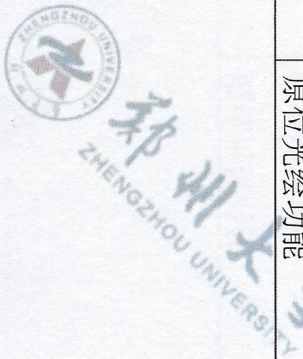 ZHENGZHOU UNIVERSITY
郑州大
ZHENGZHOU UNIVERSITY
原位光绘功能